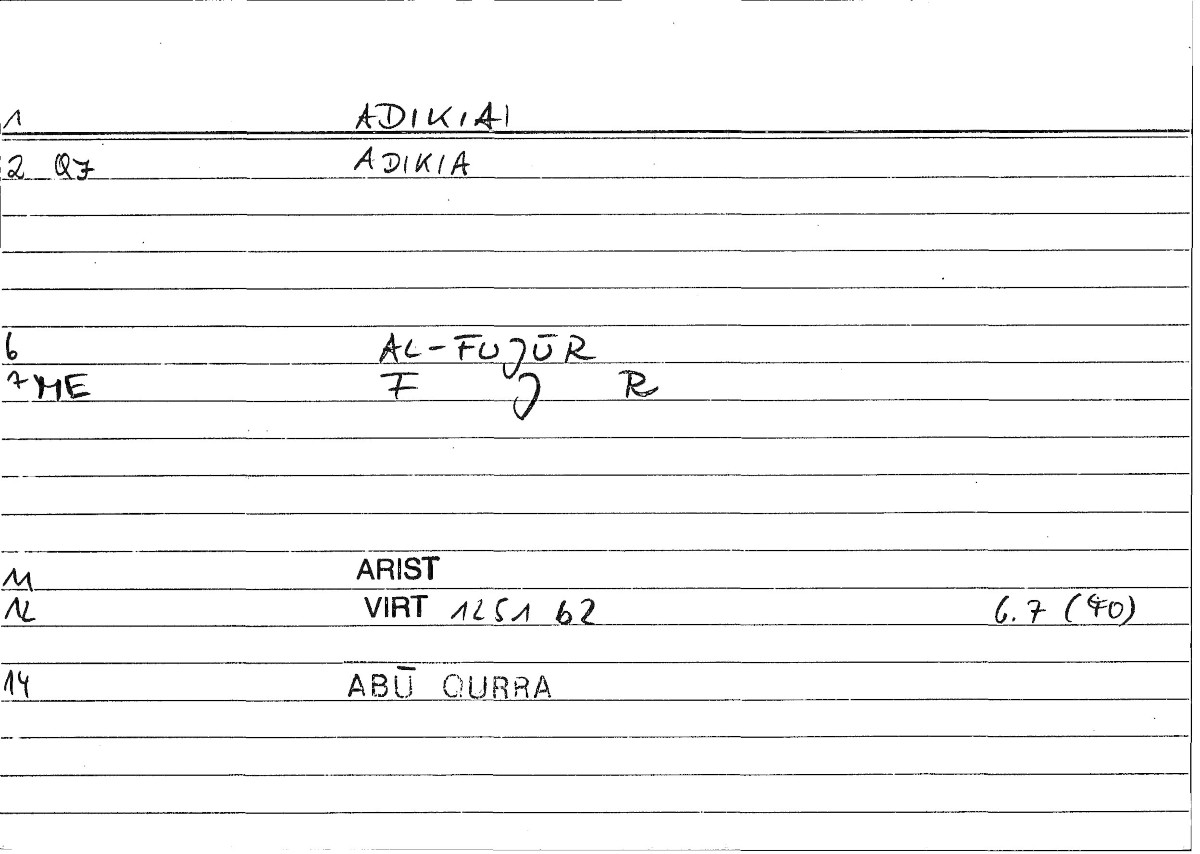 1 ADIKIAI
2 Q7 ADIKIA
6 AL-FUJŪR
7 ME F J R
11 ARIST
12 VIRT 1251 b2 6.7 (40)
14 ABŪ QURRA